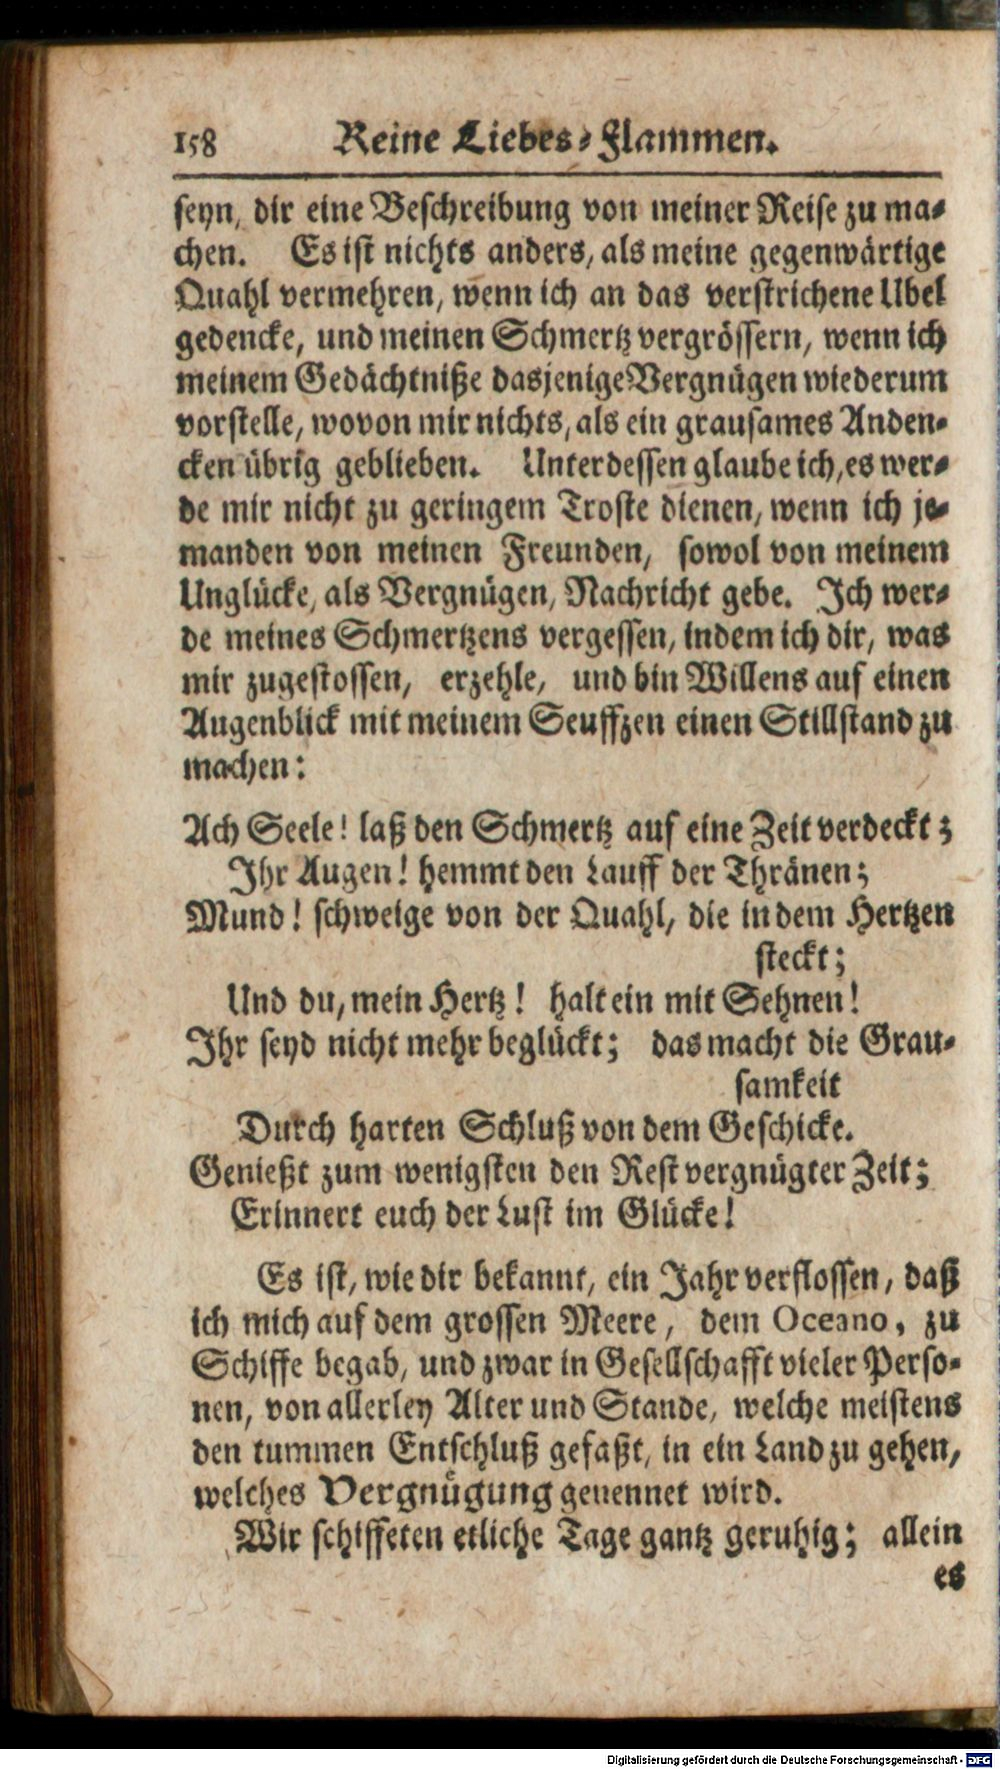 158 Reine Liebes-Flammen.
seyn, dir eine Beschreibung von meiner Reise zu ma-
chen. Es ist nichts anders, als meine gegenwärtige
Quahl vermehren, wenn ich an das verstrichene Ubel
gedencke, und meinen Schmertz vergrössern, wenn ich
meinem Gedächtniße dasjenige Vergnügen wiederum
vorstelle, wovon mir nichts, als ein grausames Anden-
cken übrig geblieben. Unterdessen glaube ich, es wer-
de mir nicht zu geringem Troste dienen, wenn ich je-
manden von meinen Freunden, sowol von meinem
Unglücke, als Vergnügen, Nachricht gebe. Ich wer-
de meines Schmertzens vergessen, indem ich dir, was
mir zugestossen, erzehle, und bin Willens auf einen
Augenblick mit meinem Seuffzen einen Stillstand zu
machen:
Ach Seele! laß den Schmertz auf eine Zeit verdeckt;
Ihr Augen! hemmt den Lauff der Thränen;
Mund! schweige von der Quahl, die in dem Hertzen
steckt;
Und du, mein Hertz! halt ein mit Sehnen!
Ihr seyd nicht mehr beglückt; das macht die Grau-
samkeit
Durch harten Schluß von dem Geschicke.
Genießt zum wenigsten den Rest vergnügter Zeit;
Erinnert euch der Lust im Glücke!
Es ist, wie dir bekannt, ein Jahr verflossen, daß
ich mich auf dem grossen Meere, dem Oceano, zu
Schiffe begab, und zwar in Gesellschafft vieler Perso-
nen, von allerley Alter und Stande, welche meistens
den tummen Entschluß gefaßt, in ein Land zu gehen,
welches Vergnügung genennet wird.
Wir schiffeten etliche Tage gantz geruhig; allein
es
Digitalisierung gefördert durch die Deutsche Forschungsgemeinschaft - DFG